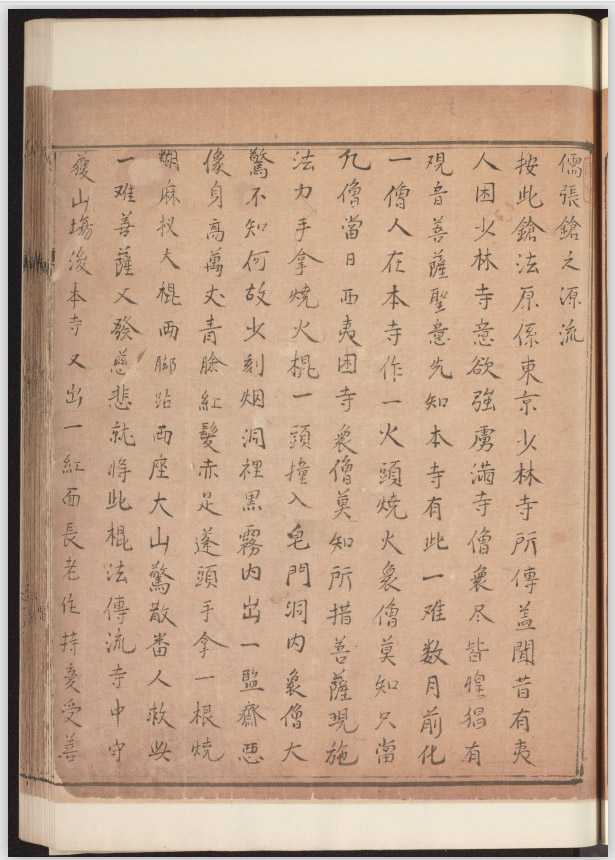 儒張鎗之源流
按此鎗法原係東京少林寺所傳盖聞昔有夷
人困少林寺意欲強虜滿寺僧衆尽皆惶猖有
覌音菩薩聖意先知本寺有此一难数月前化
一僧人在本寺作一火頭燒火衆僧莫知只當
凢僧當日西夷困寺衆僧莫知所措菩薩現施
法力手拿燒火棍一頭撞入皂門洞内衆僧大
驚不知何故少刻烟洞裡黒霧内出一監齋悪
像身高萬丈青臉紅髮赤足蓬頭手拿一根燒
煳麻杈大棍両脚跕両座大山驚散畨人救此
一难菩薩又發慈悲就将此棍法傳流寺中守
山塲後本寺又出一紅面長老住持受善